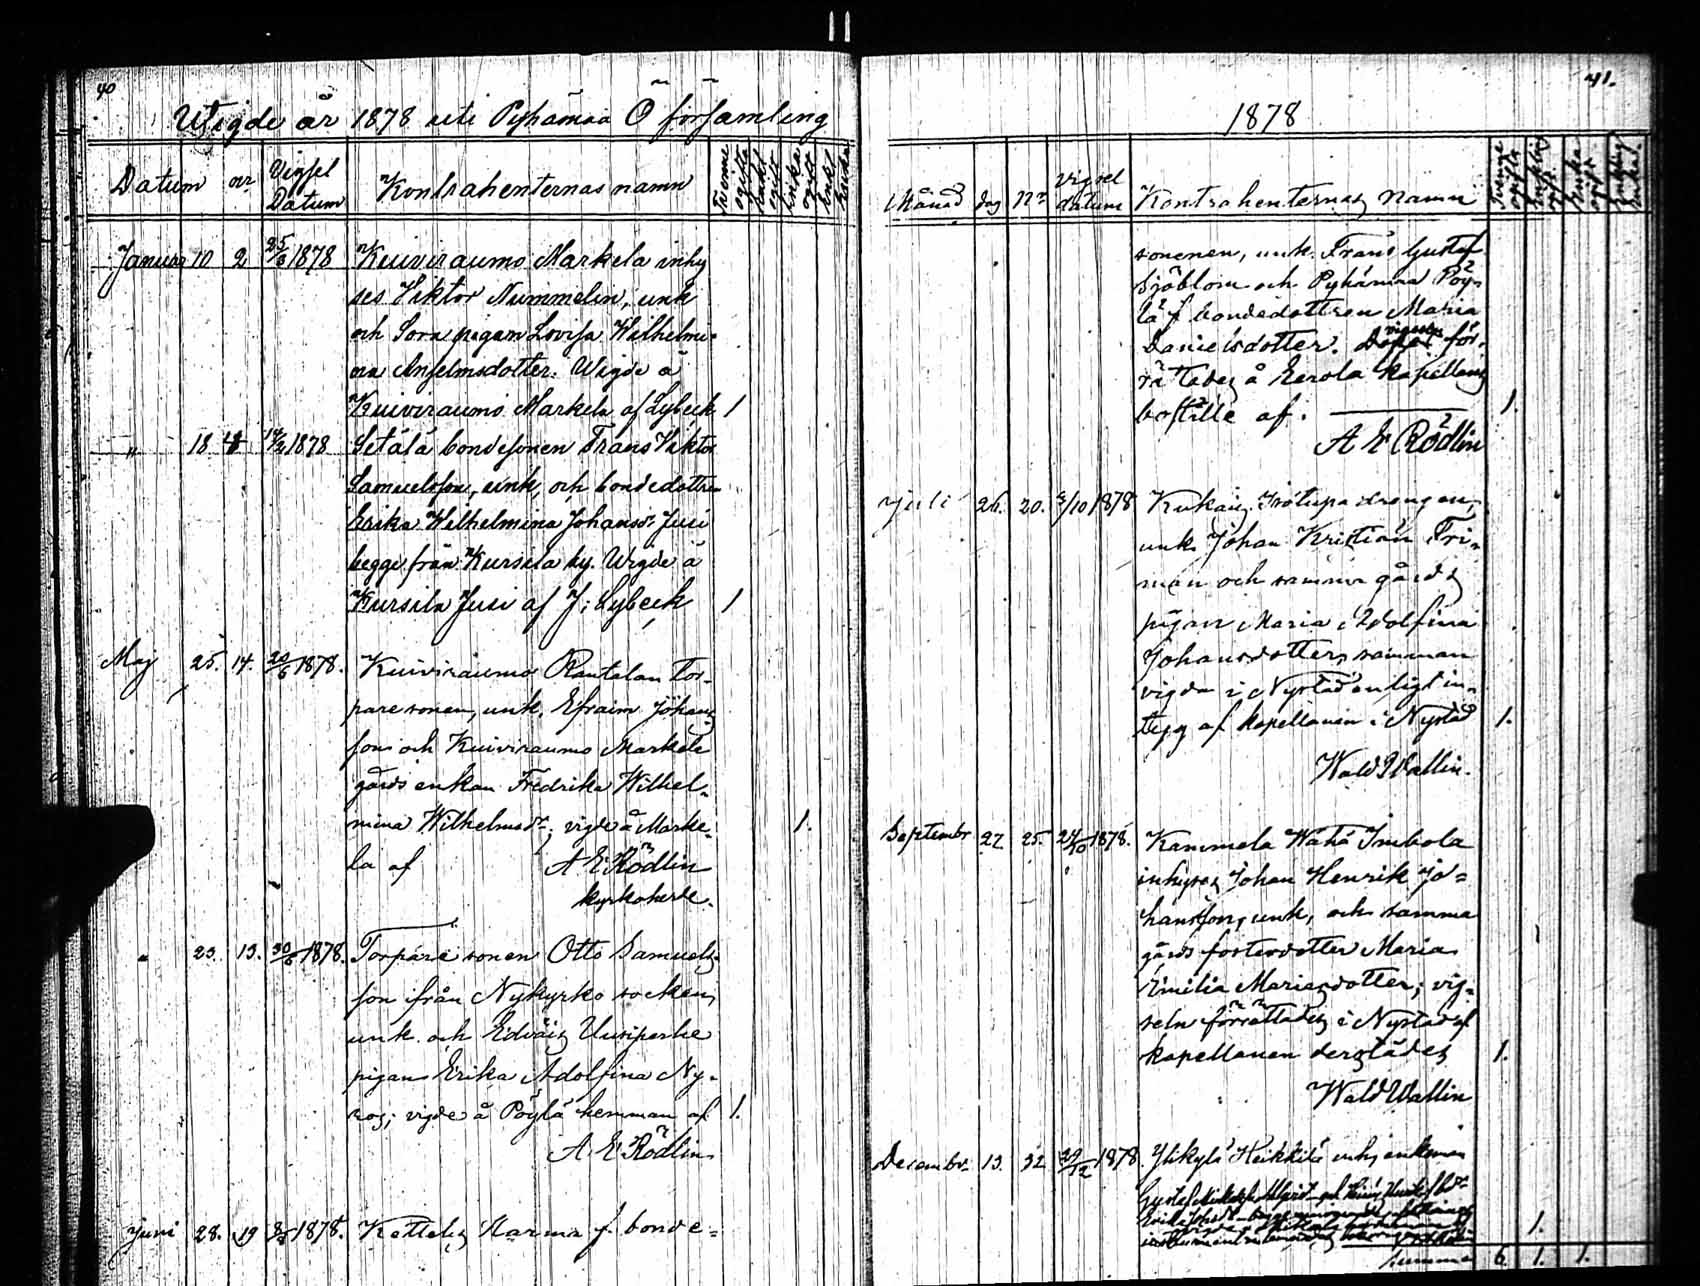 40
Utigde år 1878 uti Pyhämaa Ö församling
Datum nr Vigsel Datum Kontrahenternas namn Tvenne ogifta
Januar 10 2 25/6 1878 Kuiviraumo Markela inhy
ses Viktor Nummelin, unk
och Sora pigan Lovisa Wilhelmi-
na Anselmsdotter. Wigde å
Kuiviraumo Markela af Lybeck 1
" 18 4 14/2 1878 Setälä bondesonen Frans Viktor
Samuelsson, unk, och bondedottren
Erika Wilhelmina Johansdr Jusi
begge från Kursila by. Wigde å
Kursila Jusi af J. Lybeck 1
Maj 25. 14. 20/6 1878. Kuiviraumo Rantalan Tor-
paresonen, unk. Efraim Johans
son och Kuiviraumo Markela
gårds enkan Fredrika Wilhel-
mina Wilhelmsdr; vigde å Marke- 1.
la af A E Rödlin
kyrkoherde.
" 23. 13. 30/6 1878. Torpare sonen Otto Samuels-
son ifrån Nykyrko socken,
unk. och Edväis Uusiperhe
pigan Erika Adolfina Ny-
ros; vigde å Pöylä hemman af 1.
A. E. Rödlin
Juni 28. 19 1878. Kettelis Harma f. bonde-
41.
1878
Månad dag Nr Vigsel datum Kontrahenternas Namn
sonenen, unk. Frans Gustaf
Sjöblom och Pyhämaa Pöy-
lä f bondedottren Maria
Danielsdotter. vigseln för-
rättades å Eerola kapellans
boställe af. 1.
A E Rödlin
Juli 26. 20. 3/10 1878 Kukais Isotupa drengen,
unk. Johan Kristian Fri-
man och samma gårds
pigan Maria Adolfina
Johansdotter, samman
vigda i Nystad enligt in-
tyg af kapellanen i Nystad 1.
Wald Wallin.
Septembr 27 25. 24/10 1878. Kammela Wähä Imbola
inhyses Johan Henrik Jo-
hansson, unk, och samma
gårds fosterdotter Maria
Emilia Mariasdotter; vig-
seln förrättades i Nystad af
kapellanen derstädes 1.
Wald Wallin
Decembr. 13. 32 29/12 1878. Ylikylä Heikkilä inhy enkman
1.
Summa 6. 1. 1.